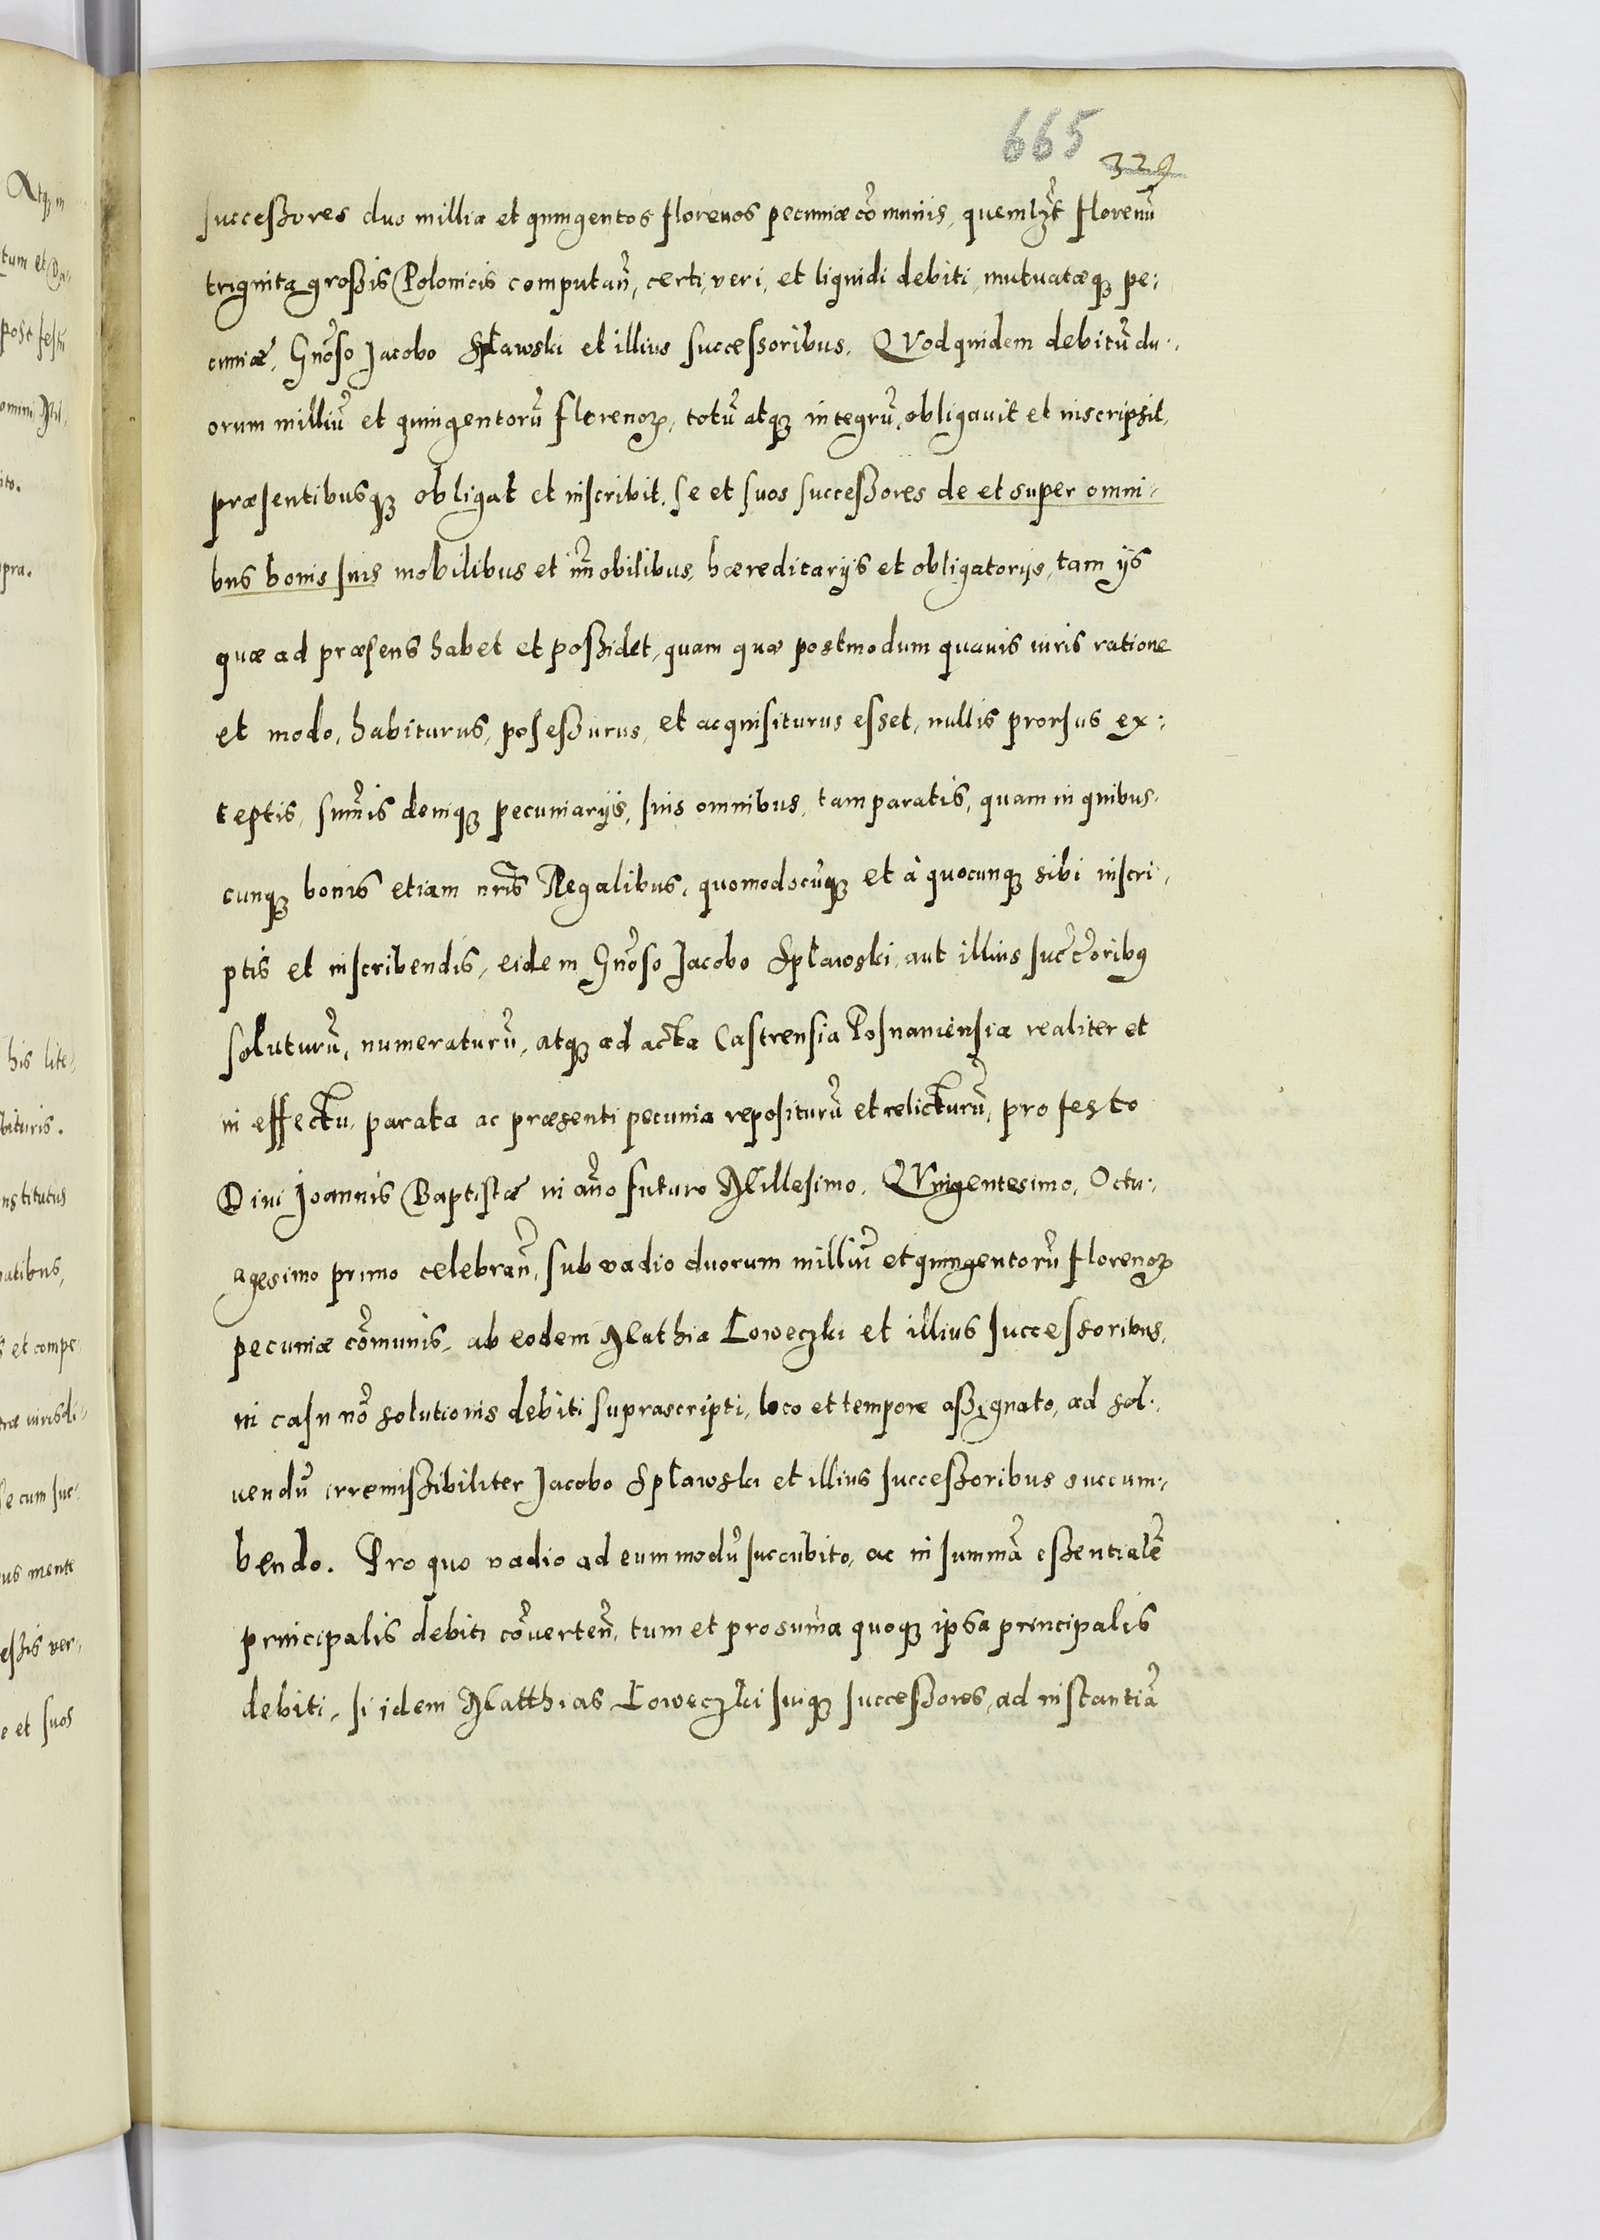 665
329
successores duo millia et quingentos florenos pecuniæ cõmunis, quemlȝt florenũ
triginta grossis Polonicis computan̄, certi, veri, et liquidi debiti, mutuatæqȝ pe:
cuniæ, Gñoso Jacobo Spławski et illius successoribus. QVod quidem debitũ du:
orum milliũ et quingentorũ florenoꝝ, totũ atqȝ integrũ, obligauit et inscripsit,
præsentibusqȝ obligat et inscribit, se et suos successores de et super omni-
bus bonis suis mobilibus et im̃obilibus, hæreditarijs et obligatorijs, tam ijs
quæ ad præsens habet et possidet, quam quæ postmodum quauis iuris ratione
et modo, habiturus, posessurus, et acquisiturus esset, nullis prorsus ex:
ceptis, sum̃is deniqȝ pecuniarijs, suis omnibus, tam paratis, quam in quibus-
cunqȝ bonis etiam nr̃is Regalibus, quomodocũqȝ et à quocunqȝ sibi inscri-
ptis et inscribendis, eidem Gñoso Jacobo Spławski, aut illius succ̃oribꝰ
soluturũ, numeraturũ, atqȝ ad acta Castrensia Posnaniensia realiter et
in effectu, parata ac præsenti pecunia repositurũ et relicturũ, pro festo
Diui Joannis Baptistæ in añno futuro Millesimo, QVingentesimo, Octu:
agesimo primo celebran̄, sub vadio duorum milliũ et quingentorũ florenoꝝ
pecuniæ cõmunis, ab eodem Mathia Łoweczki et illius successoribus,
in casu nõ solutionis debiti suprascripti, loco et tempore assignato, ad sol-
uendũ irremissibiliter Jacobo Spławski et illius successoribus succum-
bendo. Pro quo vadio ad eum modũ succũbito, ac in summã essentialẽ
principalis debiti cõuerten̄, tum et pro sum̃a quoqȝ ipsa principalis
debiti, si idem Matthias Łoweczki suiqȝ successores, ad instantiã